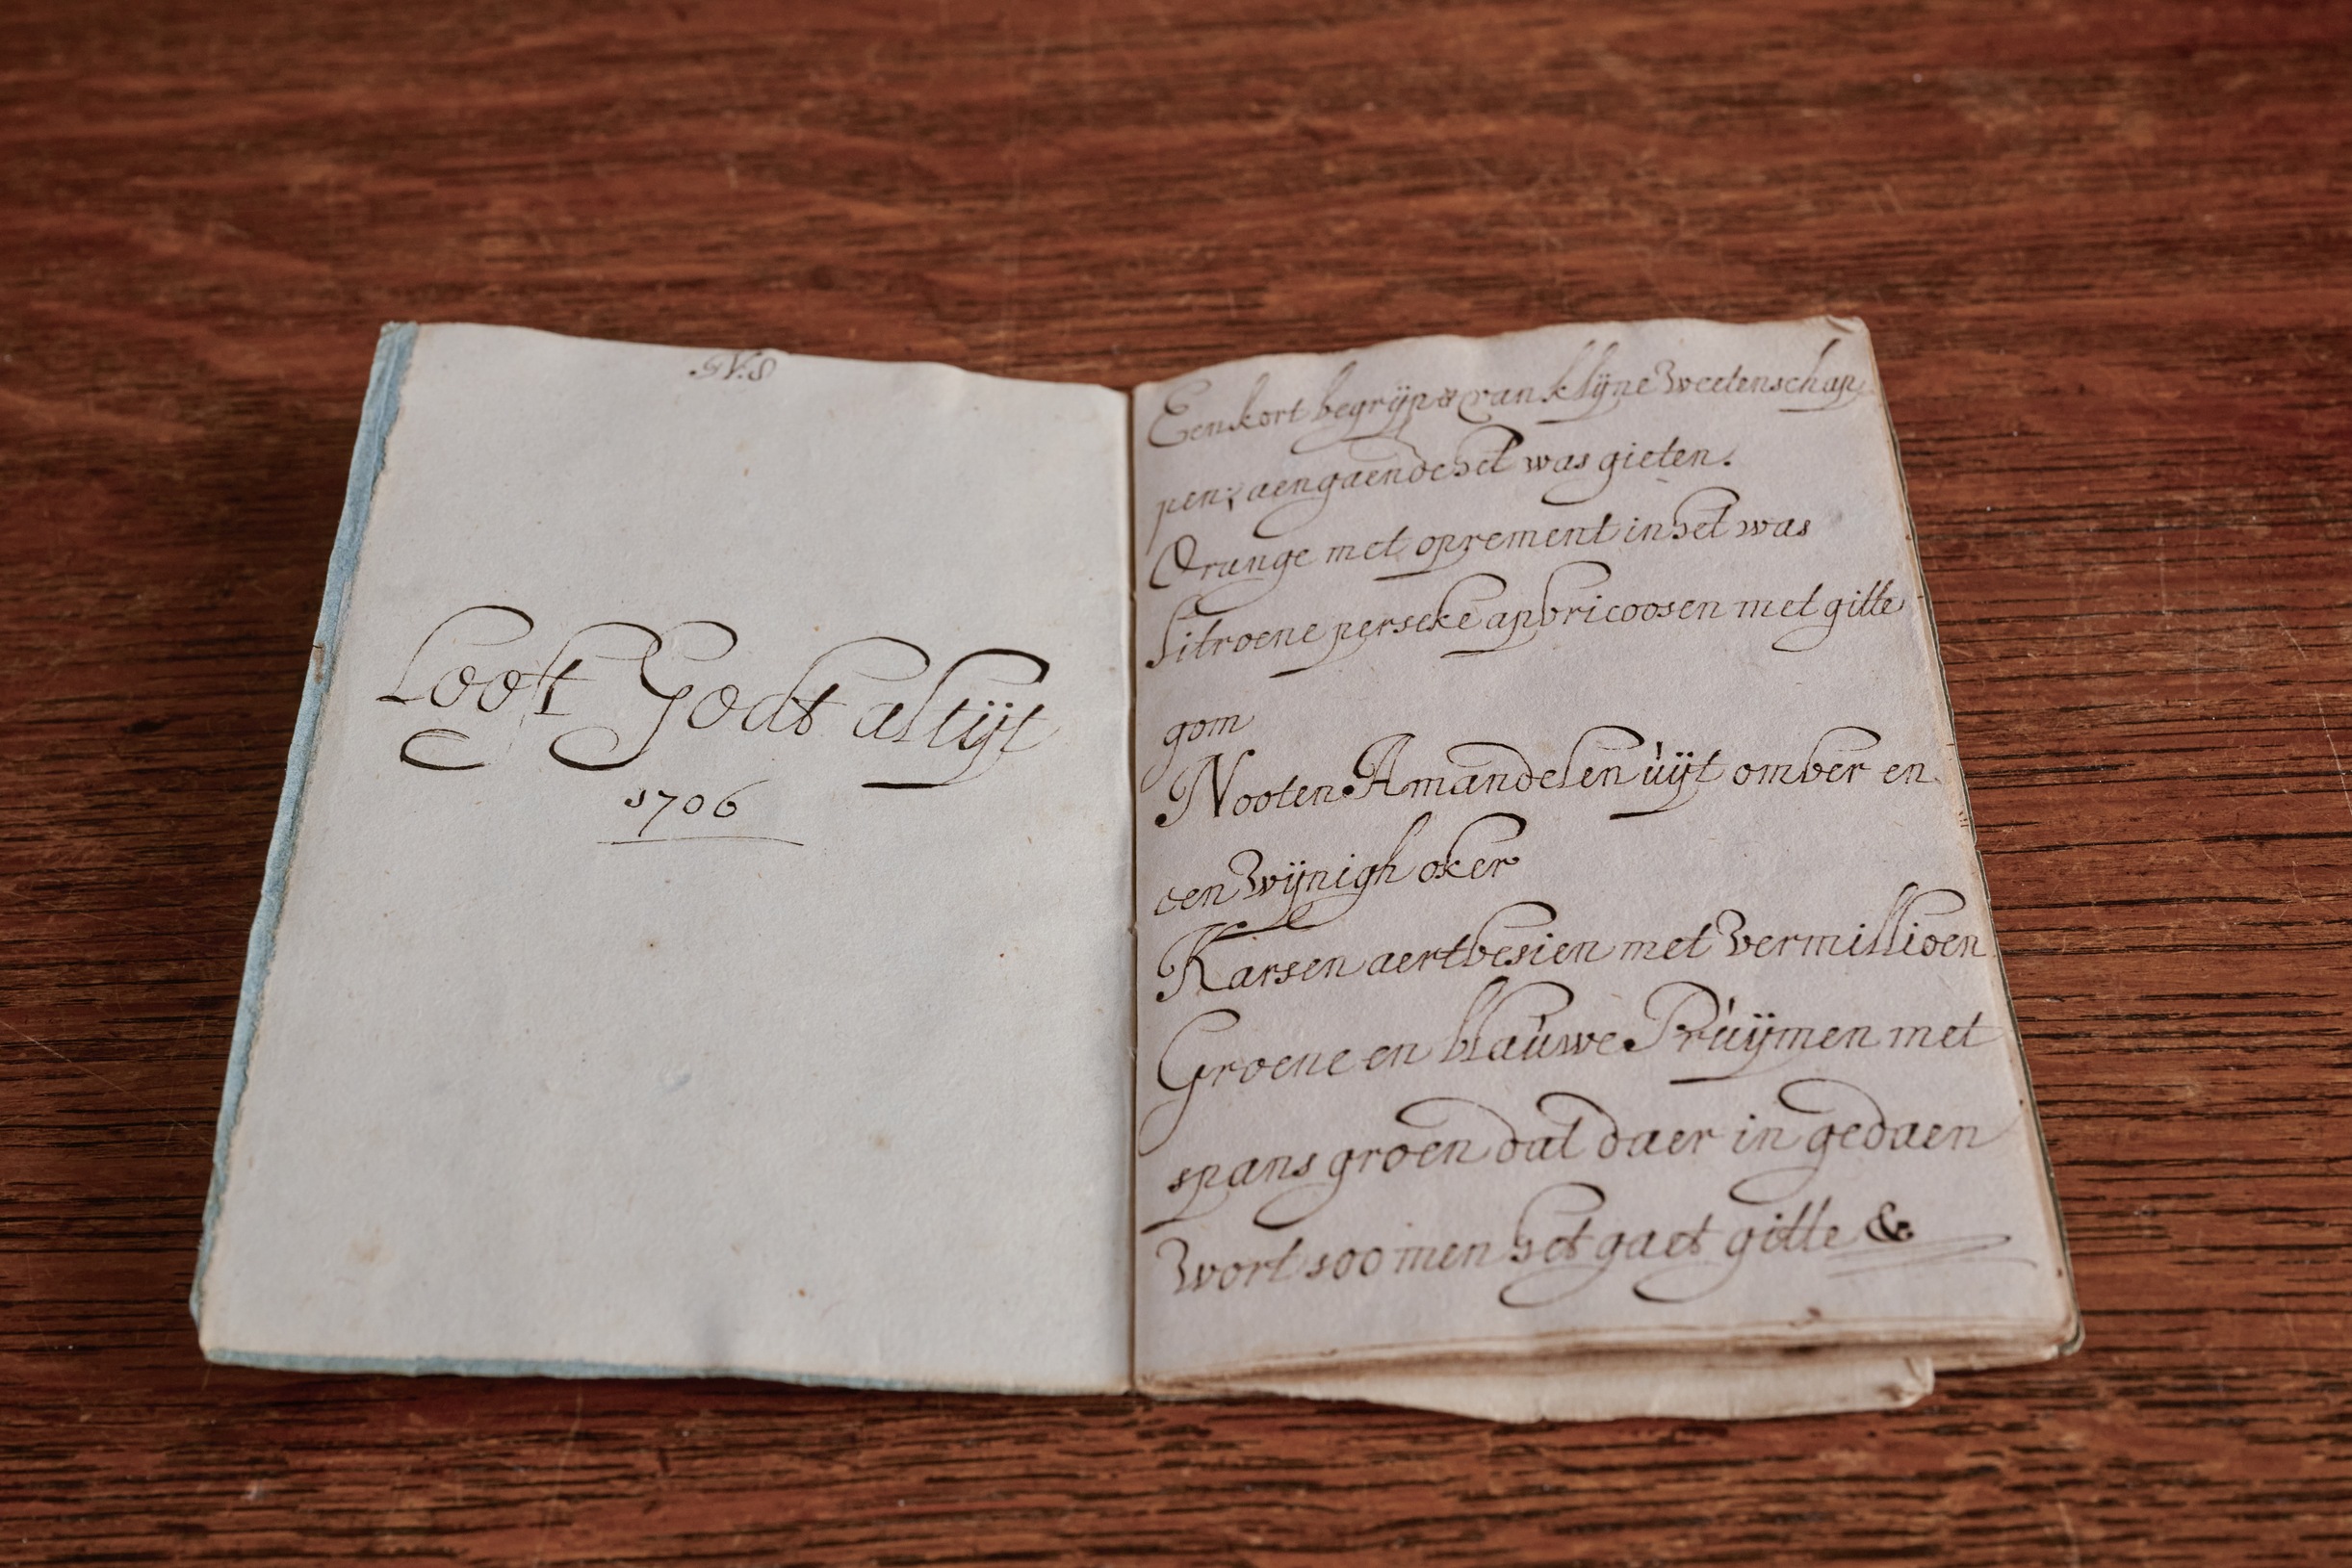 N:8
Looft Godt altijt
1706
Een kort begrijp van klijne Weetenschap
pen; aengaende het was gieten.
Orange met oprement in het was
Sitroene perseke apbricoosen met gille
gom
Nooten Amandelen uijt omber en
een Wijnigh oker
Karsen aertbesien met Vermillioen
Groene en blauwe Pruijmen met
spans groen dat daer in gedaen
Wort soo men het gaet gitte &